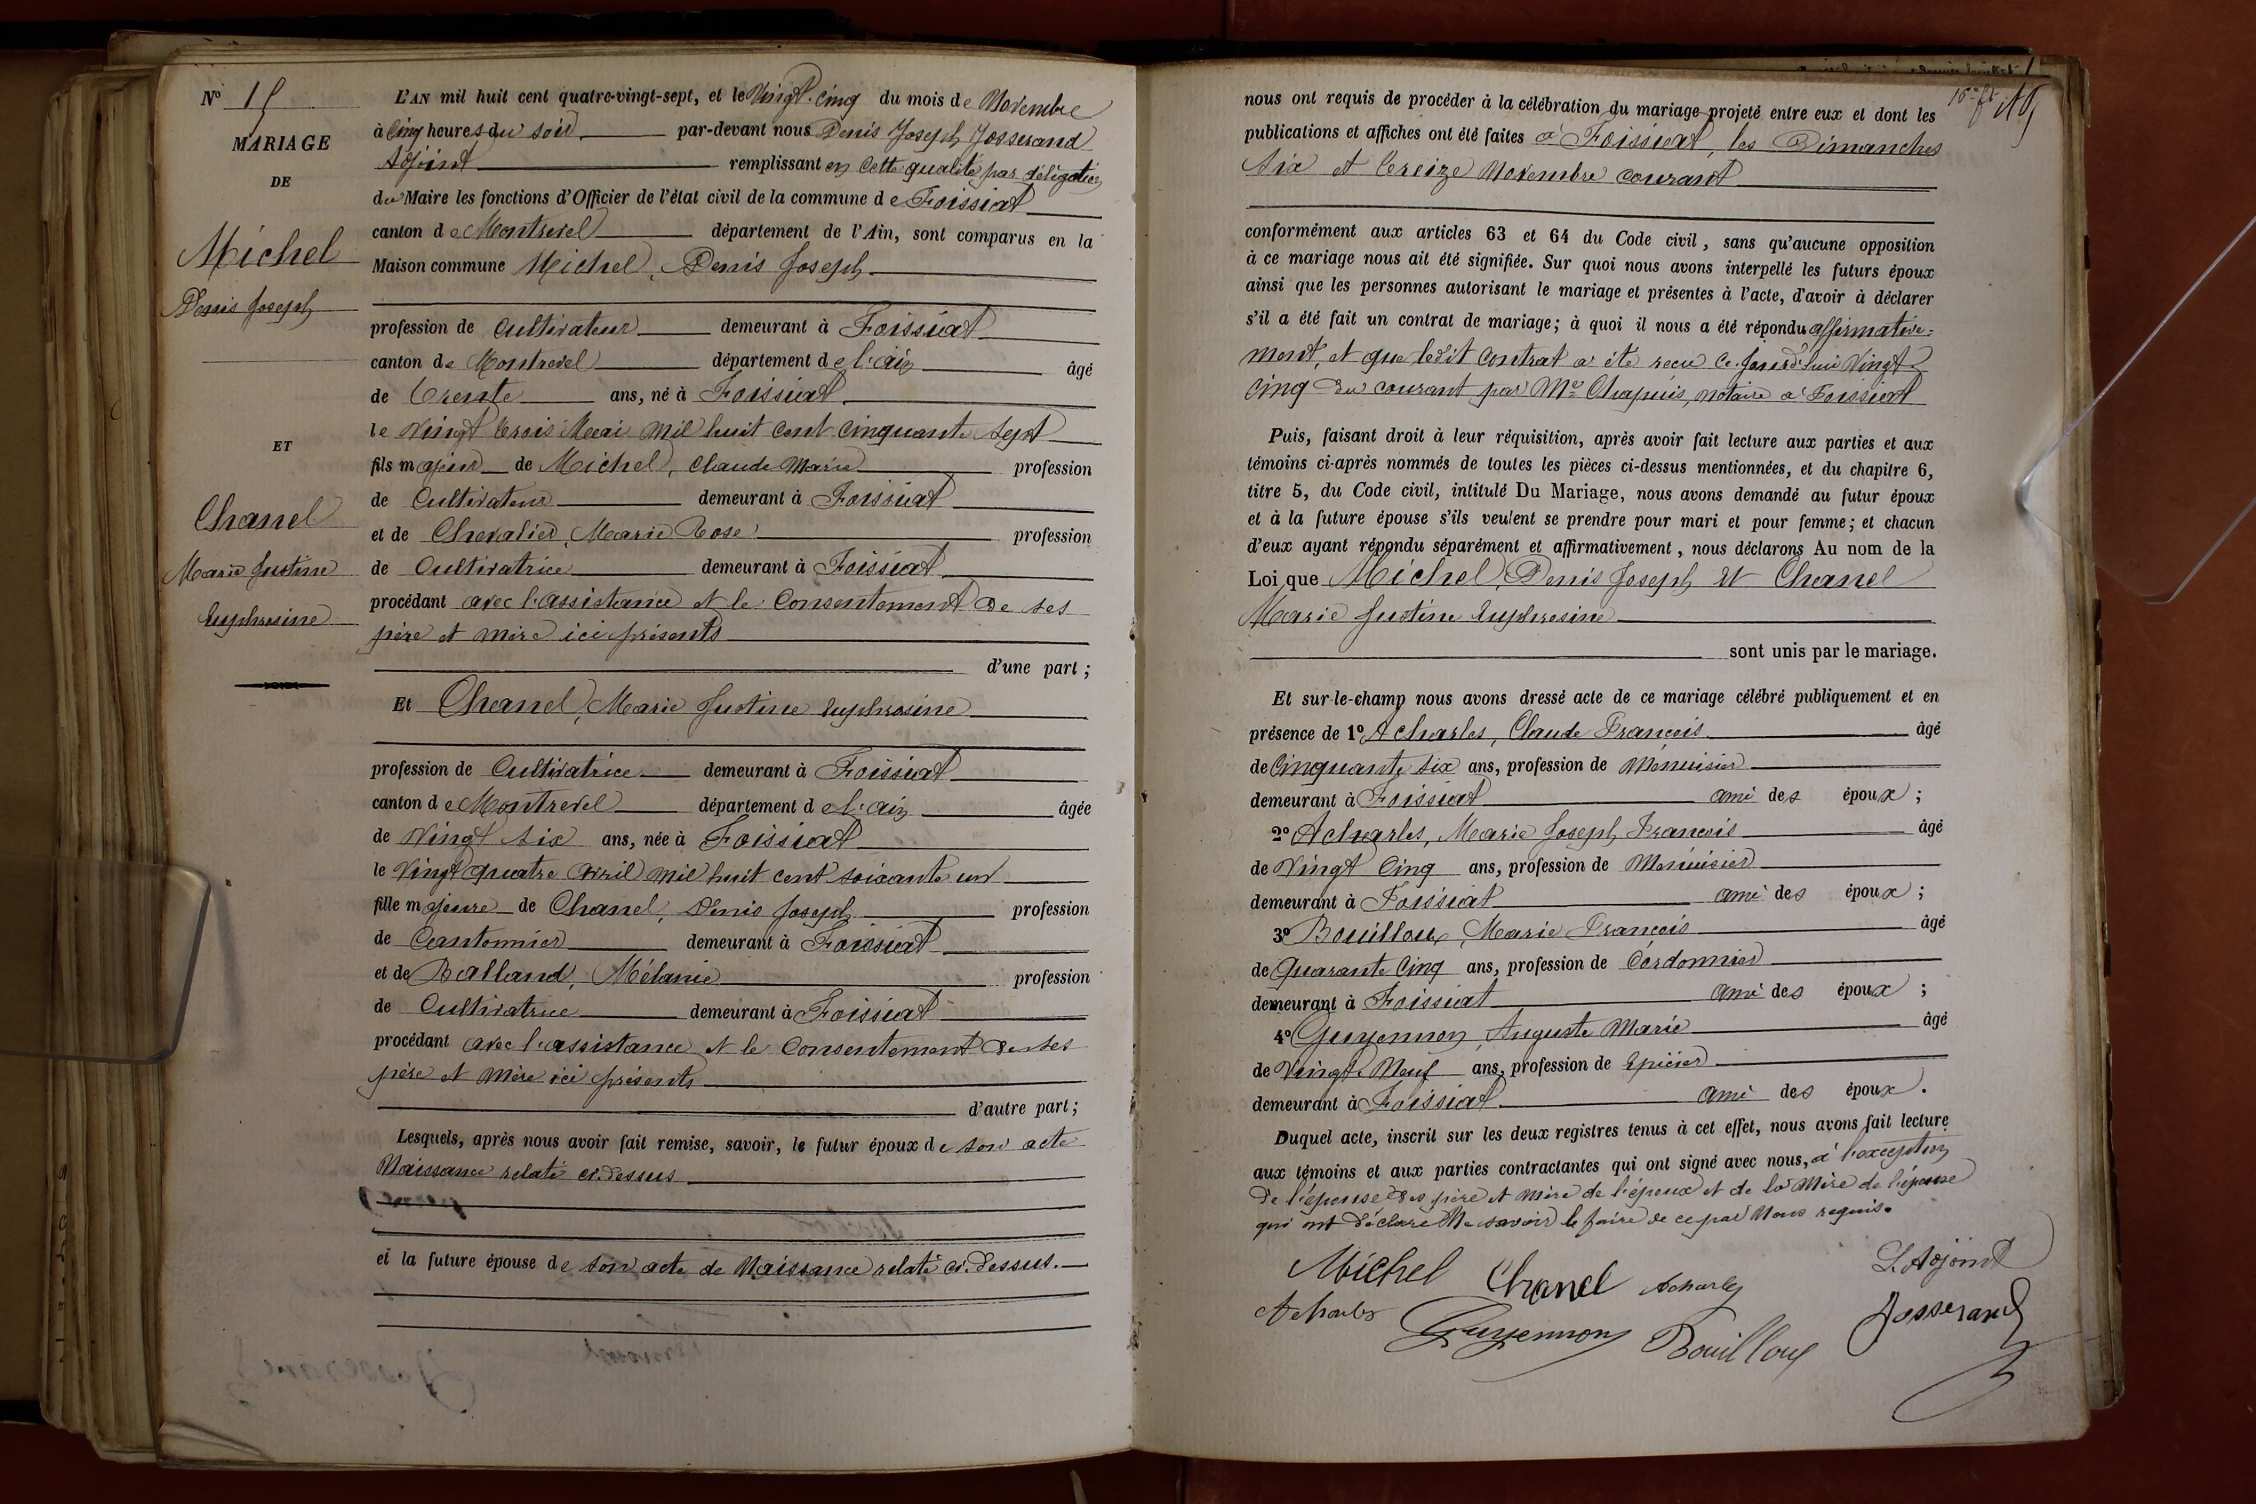 Nº 15
MARIAGE
DE
Michel
Denis Joseph
ET
Chanel
Marie Justine
Euphrosine
L'AN mil huit cent quatre-vingt-sept, et le Vingt-Cinq du mois de Novembre
à Cinq heures du soir par-devant nous Denis Joseph Josserand
Adjoint remplissant en cette qualité par délégation
du Maire les fonctions d'Officier de l'état civil de la commune de Foissiat
canton de Montrevel département de l'Ain, sont comparus en la
Maison commune Michel, Denis Joseph
profession de Cultivateur demeurant à Foissiat
canton de Montrevel département de l'ain âgé
de trente ans, né à Foissiat
le Vingt trois Mai mil huit cent cinquante sept
fils majeur de Michel, Claude Marie profession
de Cultivateur demeurant à Foissiat
et de Chevalier, Marie Rose profession
de Cultivatrice demeurant à Foissiat
procédant avec l'assistance et le Consentement de ses
père et mère ici présents
d'une part ;
Et Chanel, Marie Justine Euphrosine
profession de Cultivatrice demeurant à Foissiat
canton de Montrevel département de l'ain âgée
de Vingt six ans, née à Foissiat
le Vingt quatre avril mil huit cent soixante un
fille majeure de Chanel, Denis Joseph profession
de Cantonnier demeurant à Foissiat
et de Balland, Mélanie profession
de Cultivatrice demeurant à Foissiat
procédant avec l'assistance et le Consentement de ses
père et mère ici présents
d'autre part ;
Lesquels, après nous avoir fait remise, savoir, le futur époux de son acte
Naissance relaté ci-dessus
et la future épouse de son acte de Naissance relaté ci-dessus.
nous ont requis de procéder à la célébration du mariage projeté entre eux et dont les
publications et affiches ont été faites à Foissiat, les Dimanches
six et treize Novembre courant
conformément aux articles 63 et 64 du Code civil, sans qu'aucune opposition
à ce mariage nous ait été signifiée. Sur quoi nous avons interpellé les futurs époux
ainsi que les personnes autorisant le mariage et présentes à l'acte, d'avoir à déclarer
s'il a été fait un contrat de mariage; à quoi il nous a été répondu affirmative-
ment, et que ledit contrat a été recu ce jourd'hui Vingt
cinq du courant par Me Chapuis, notaire à Foissiat
Puis, faisant droit à leur réquisition, après avoir fait lecture aux parties et aux
témoins ci-après nommés de toutes les pièces ci-dessus mentionnées, et du chapitre 6,
titre 5, du Code civil, intitulé Du Mariage, nous avons demandé au futur époux
et à la future épouse s'ils veulent se prendre pour mari et pour femme; et chacun
d'eux ayant répondu séparément et affirmativement, nous déclarons Au nom de la
Loi que Michel, Denis Joseph et Chanel
Marie Justine Euphrosine
sont unis par le mariage.
Et sur-le-champ nous avons dressé acte de ce mariage célébré publiquement et en
présence de 1º Acharles, Claude François âgé
de Cinquante six ans, profession de Menuisier
demeurant à Foissiat ami des époux ;
2º Acharles, Marie Joseph François âgé
de Vingt Cinq ans, profession de Menuisier
demeurant à Foissiat ami des époux ;
3º Bouilloux, Marie François âgé
de Quarante Cinq ans, profession de Cordonnier
demeurant à Foissiat ami des époux ;
4º Guyennon, Auguste Marie âgé
de Vingt Neuf ans, profession de Epicier
demeurant à Foissiat ami des époux.
Duquel acte, inscrit sur les deux registres tenus à cet effet, nous avons fait lecture
aux témoins et aux parties contractantes qui ont signé avec nous, à l'exception
de l'épouse des père et mère de l'époux et de la mère de l'épouse
qui ont déclaré Ne savoir le faire de ce par Nous requis.
Michel Chanel Acharles L'Adjoint
Acharles Guyennon Bouilloux Josserand